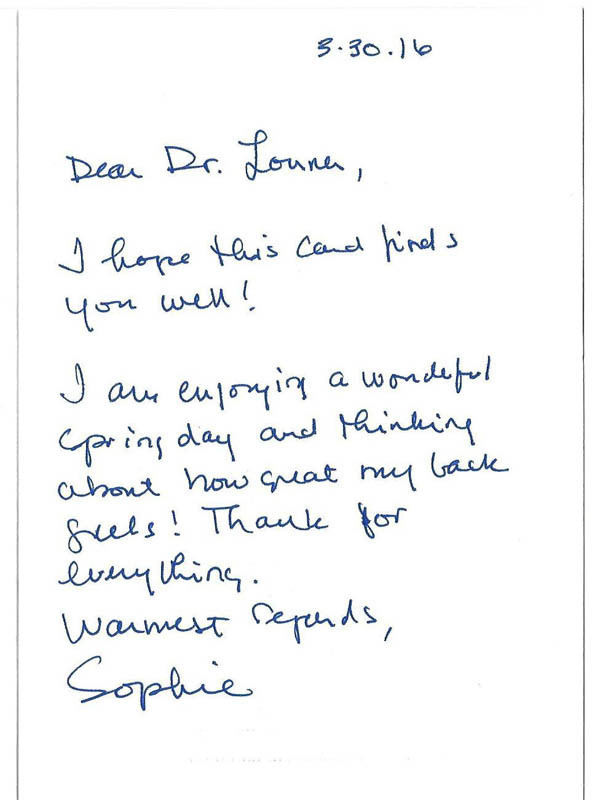 3.30.16
Dear Dr. Lonner,
I hope this card finds
you well!
I am enjoying a wonderful
spring day and thinking
about how great my back
feels! Thank for
everything.
Warmest regards,
Sophie